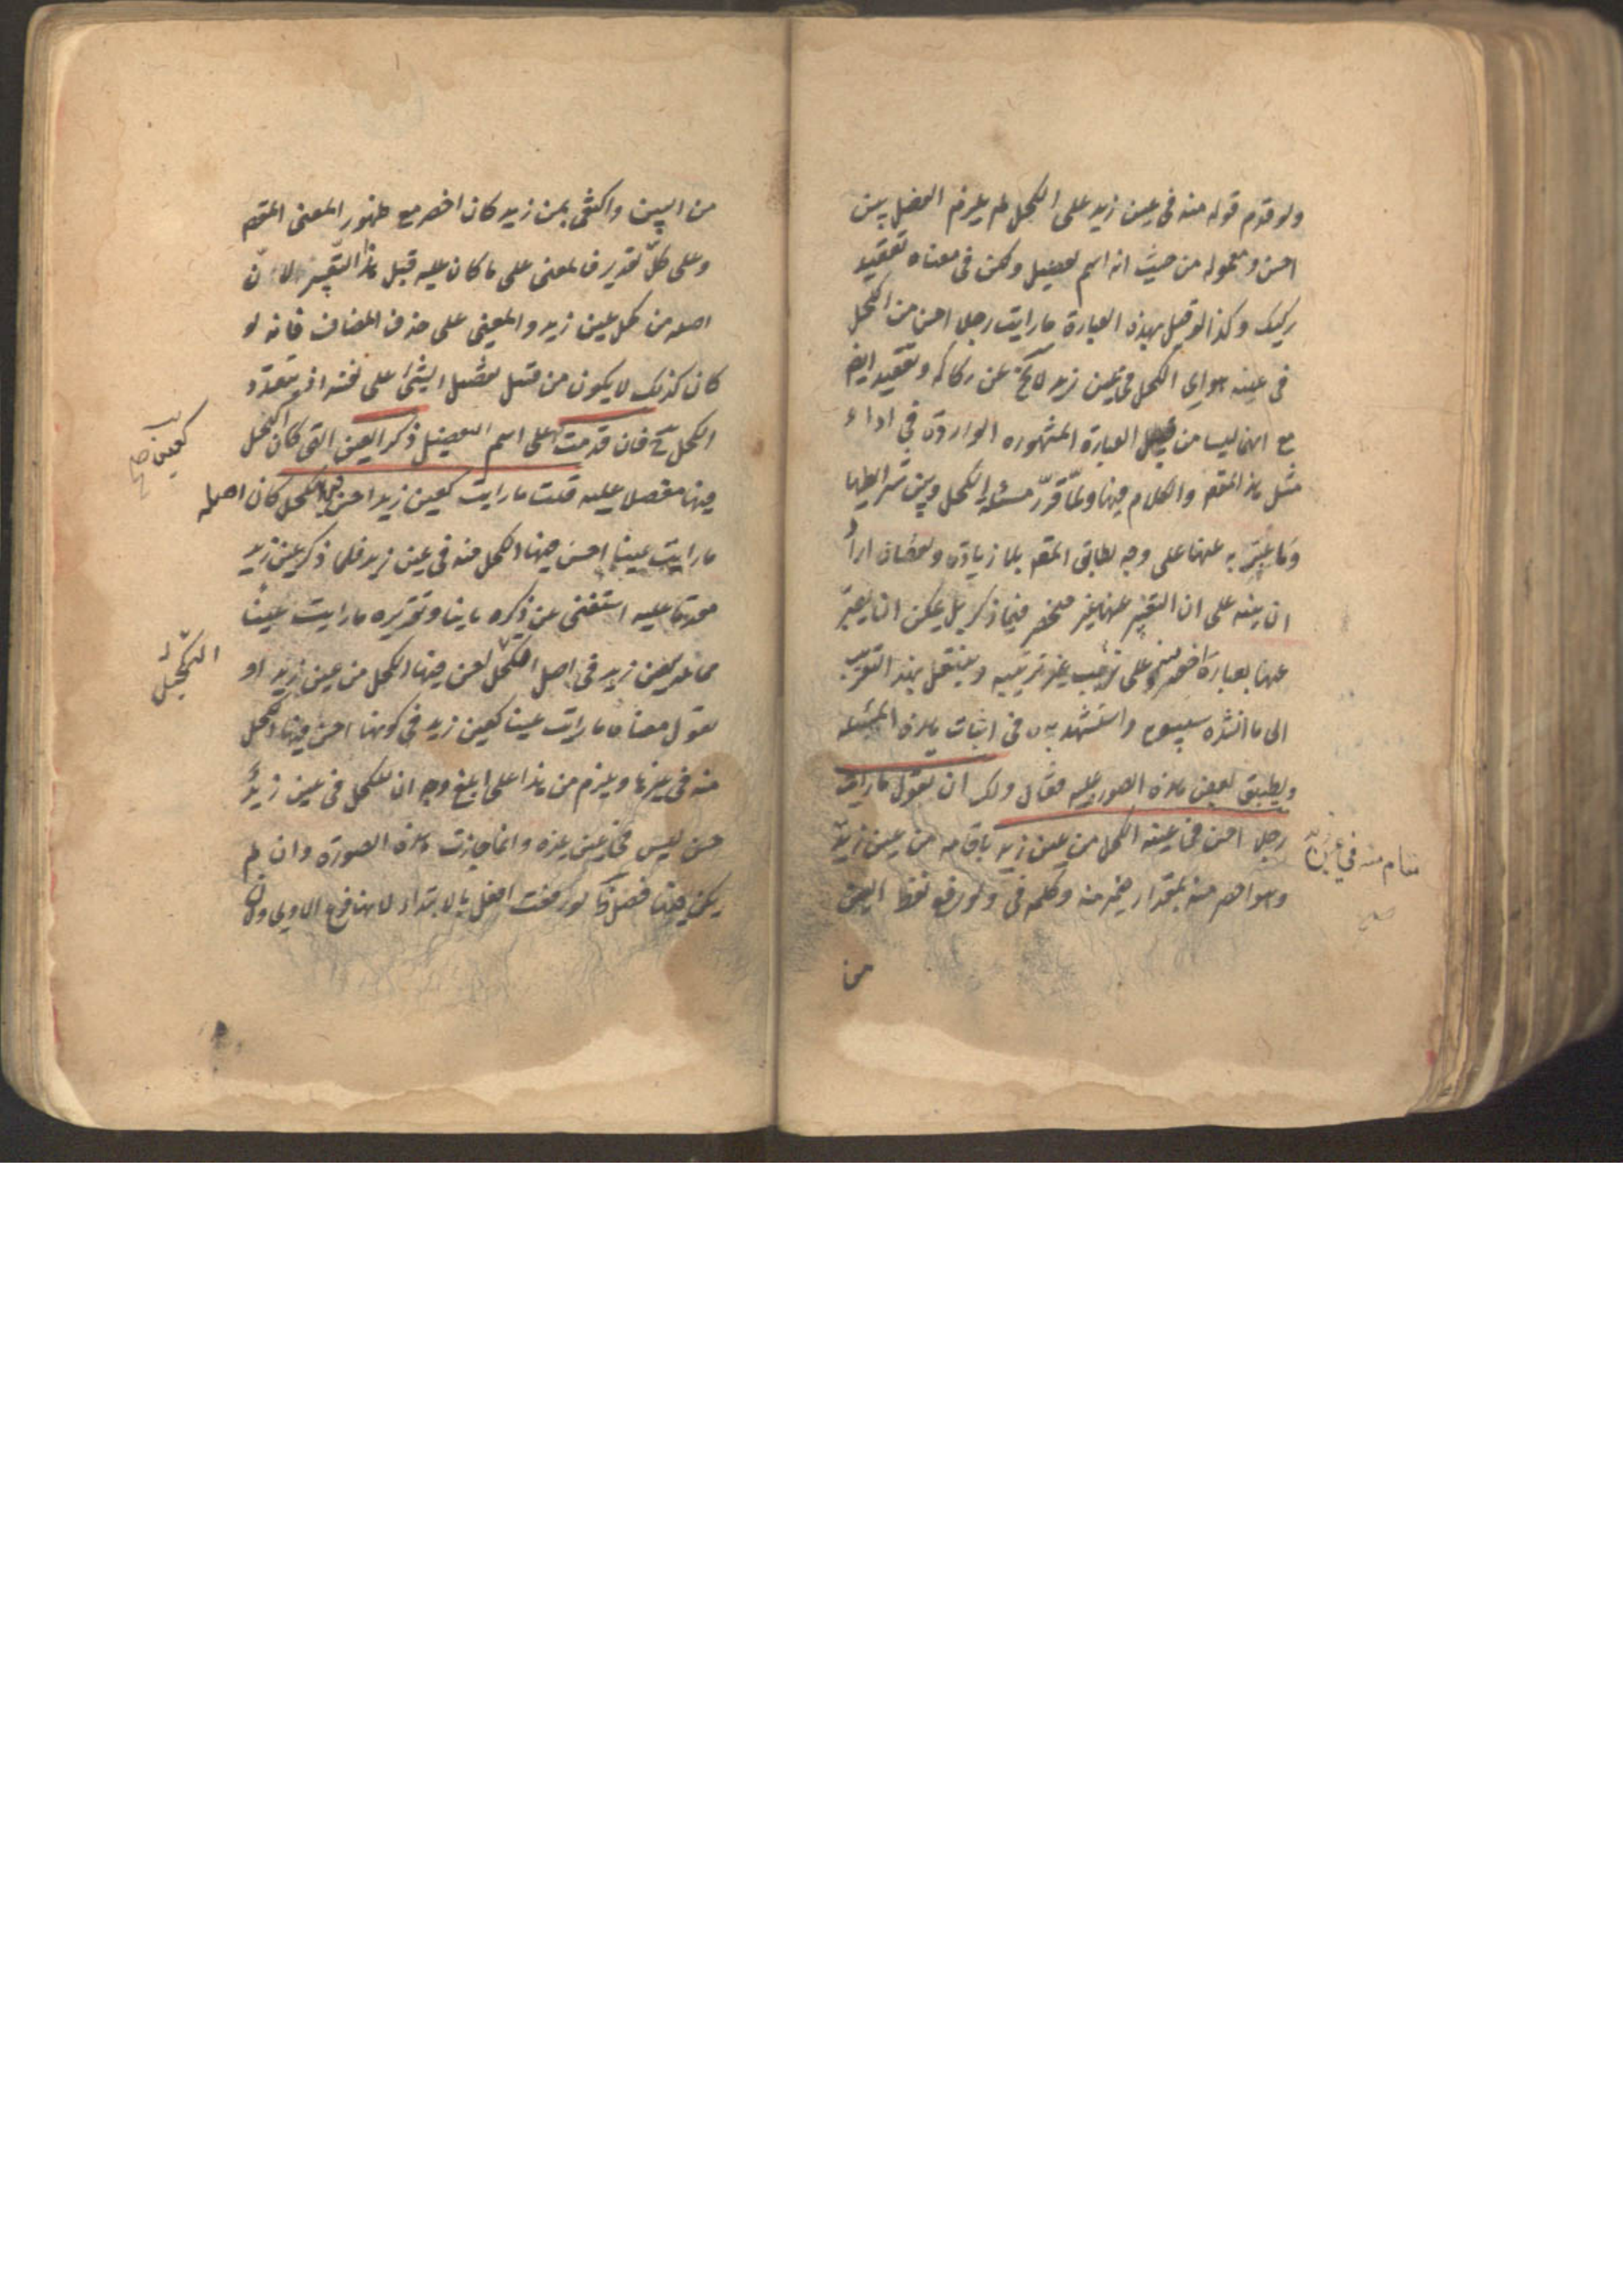 ولو قدم قوله منه فى عين زيد على الكحل لم يلزم الفصل بين
احسن ومعموله من حيث انه اسم تفضيل ولكن فى معناه تعقيد
ركيك وكذا لو قيل بهذه العبارة ما رايت رجلا احسن من الكحل
فى عينه هو اى الكحل فى عين زيد لا يخ عن ركاكه وتعقيد ايض
مع انها ليسا من قبيل العبارة المشهوره الواردة فى اداء
مثل هذا المقصد والكلام فيها ولما قرر مسئلة الكحل وبين شرايطها
وما عبر به عنها على وجه يطابق المقصد بلا زيادة ونقصان اراد
ان ينبه على ان التعبير عنها غير منحصر فيما ذكر بل يمكن ان يعبر
عنها بعبارة اخصر وعلى ترتيب غير ترتيبه وينتقل بهذا التقريب
الى ما انشده سيبويه واستشهد به فى اثبات هذه المسئلة
ويطبق بعض هذه الصور عليه فقال ولك ان تقول ما رايت
رجلا احسن فى عينه الكحل من عين زيد باقامه من عين زيد
مقام منه فى عين زيد
صح
وهو اخصر منه بمقدار ضمير منه وكلمه فى ولو رفع لفظ العين
من
من البين واكتفى بمن زيد كان اخصر مع ظهور المعنى المقصد
وعلى كل تقدير فالمعنى على ما كان عليه قبل هذا التغيير لان
اصله من كحل عين زيد والمعنى على حذف المضاف فانه لو
كان كذلك لا يكون من قبيل تفضيل الشئ على نفسه اذ يتعدد
الكحل ح فان قدمت على اسم التفضيل ذكر العين التى كان الكحل
فيها مفضلا عليه قلت ما رايت كعين زيد احسن فيها الكحل كان اصله
كعين صح
ما رايت عينا احسن فيها الكحل منه فى عين زيد فلما ذكر عين زيد
مقدما عليه استغنى عن ذكره ثانيا وتقديره ما رايت عينا
مماثلة لعين زيد فى اصل التكحل احسن فيها الكحل من عين زيد او
التكحل
نقول معناه ما رايت عينا كعين زيد فى كونها احسن فيها الكحل
منه فى غيرها ويلزم من هذا على ابلغ وجه ان للكحل فى عين زيد
حسن ليس فى عين غيره وانما جازت هذه الصورة وان لم
يكن هناك فصل لو رفعت افعل بالابتداء لانها فرع الاولى ولان